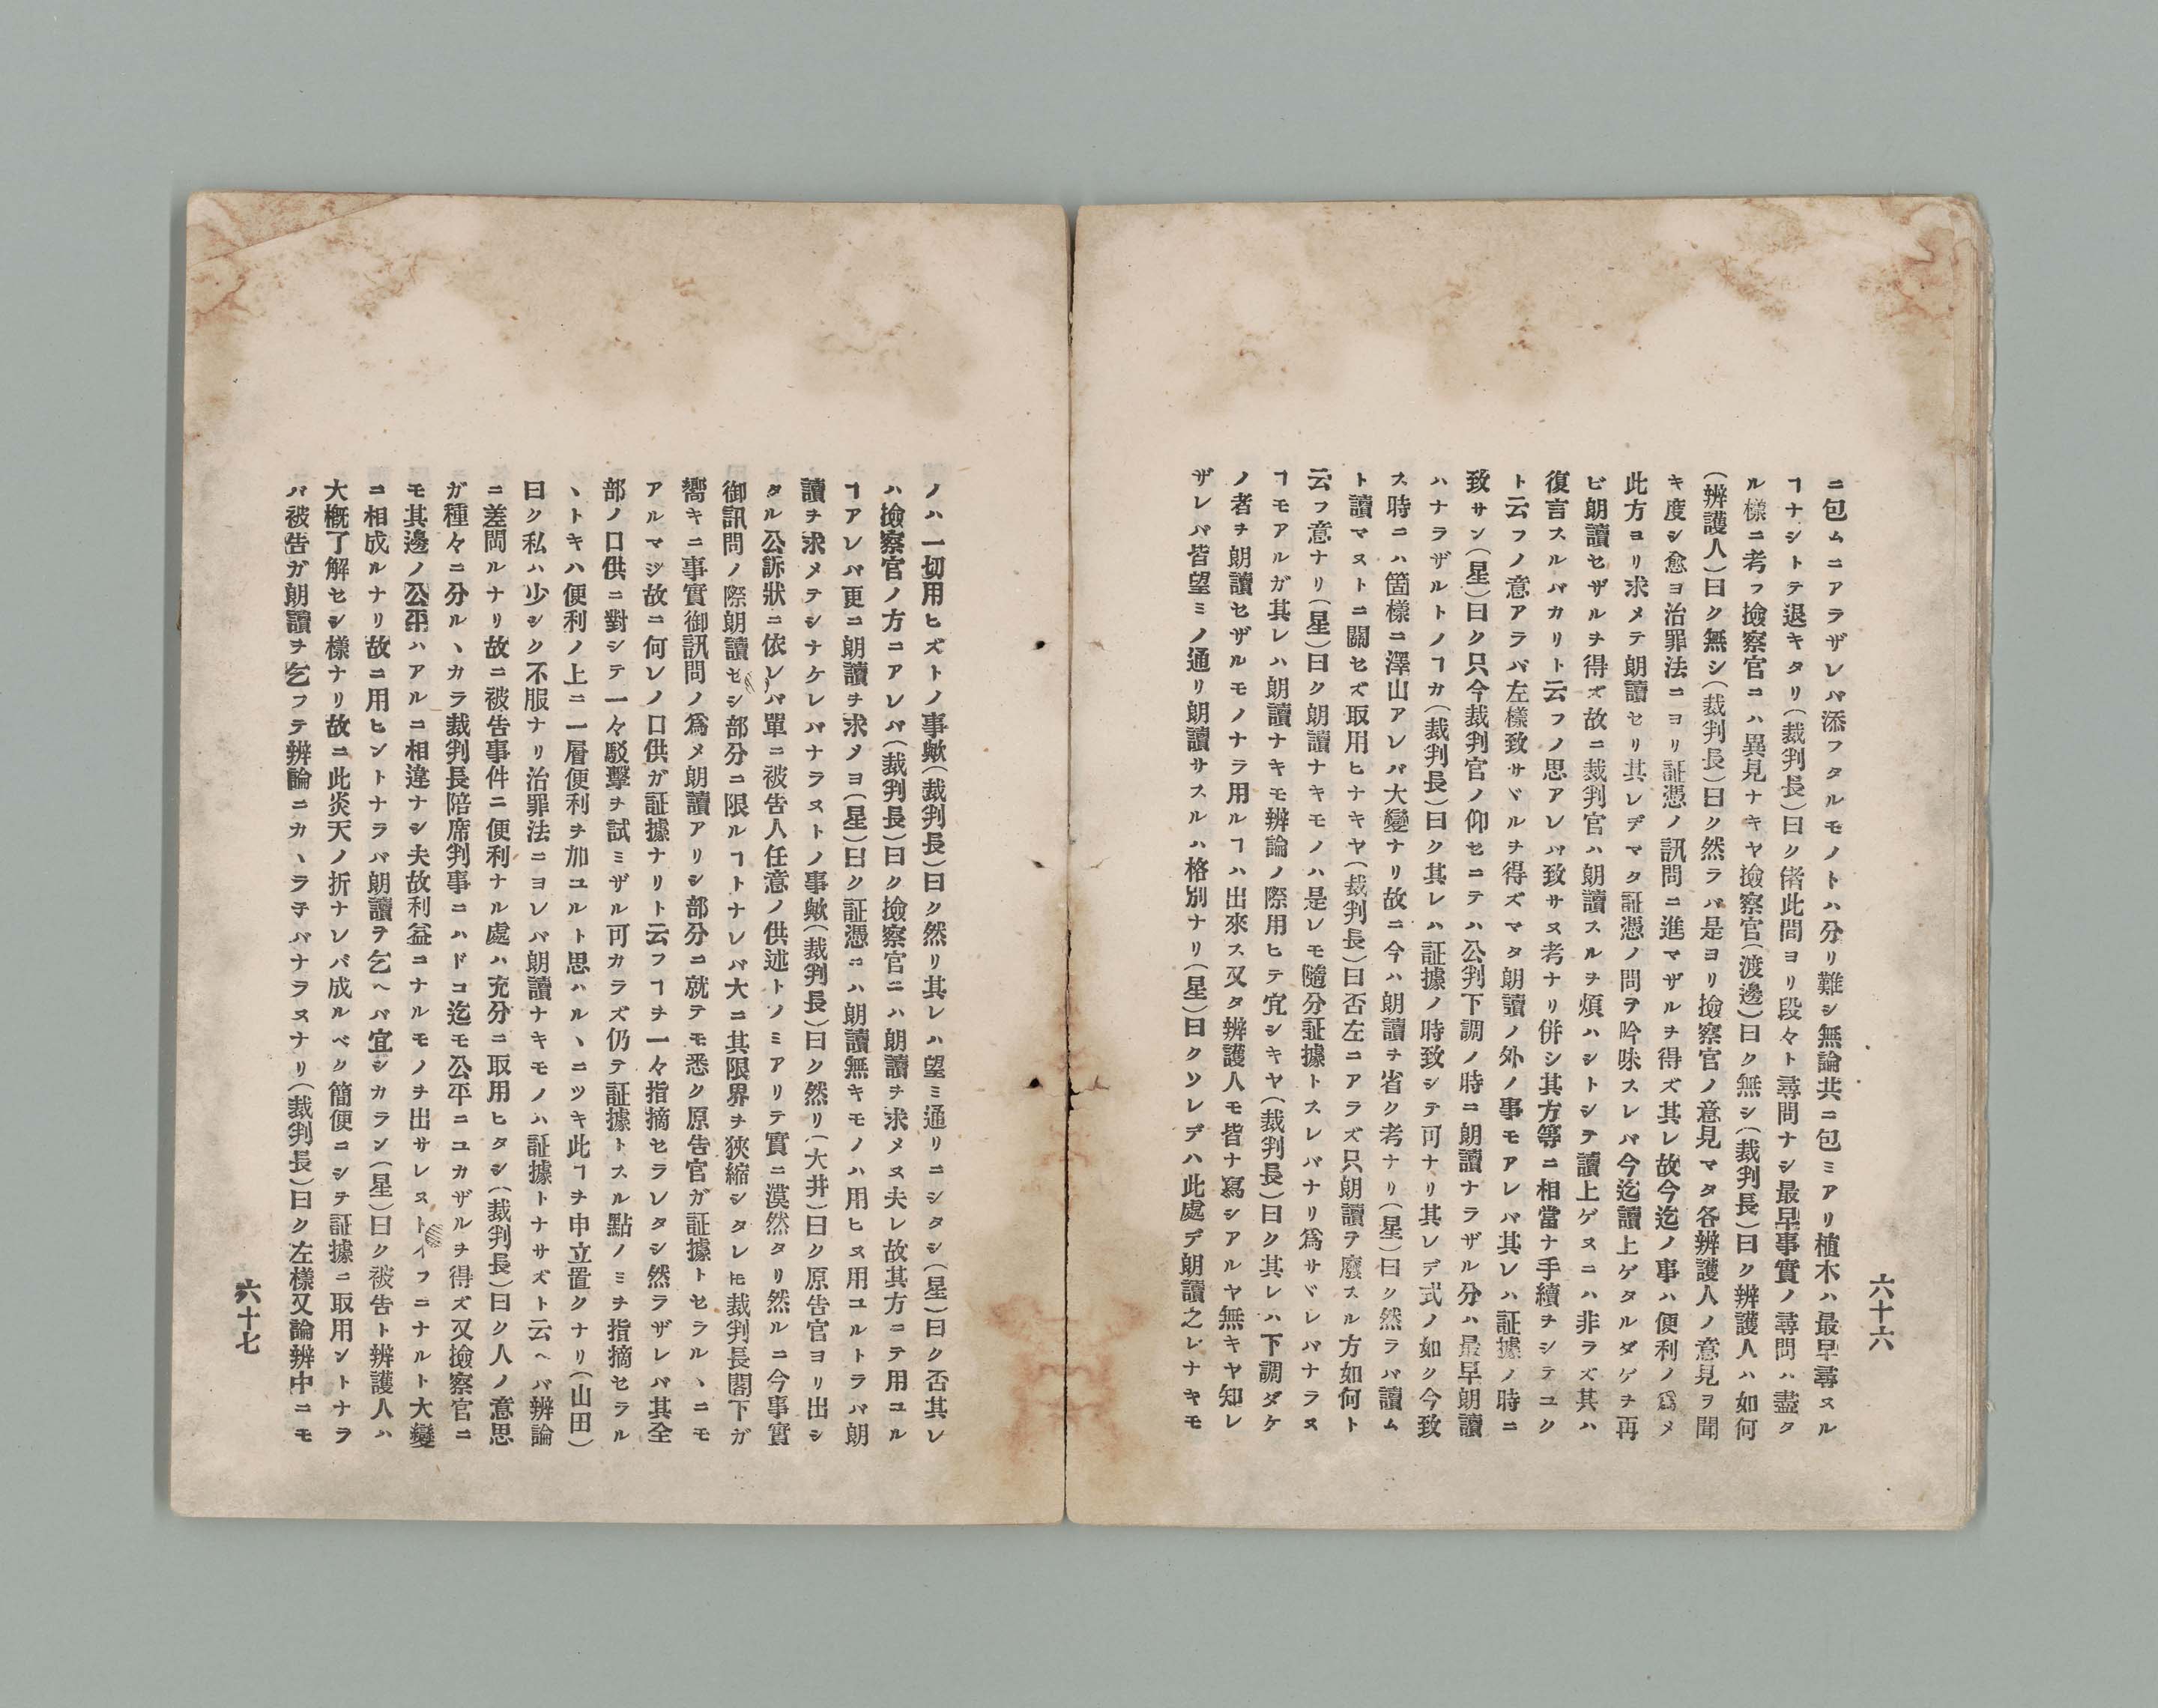 六十六
ニ包ムニアラザレバ添フタルモノトハ分リ難シ無論共ニ包ミアリ植木ハ最早尋ヌル
ヿナシトテ退キタリ(裁判長)曰ク偖此間ヨリ段々ト尋問ナシ最早事實ノ尋問ハ盡タ
ル樣ニ考フ撿察官ニハ異見ナキヤ撿察官(渡邊)曰ク無シ(裁判長)曰ク辨護人ハ如何
(辨護人)曰ク無シ(裁判長)曰ク然ラバ是ヨリ撿察官ノ意見マタ各辨護人ノ意見ヲ聞
キ度シ愈ヨ治罪法ニヨリ証憑ノ訊問ニ進マザルヲ得ズ其レ故今迄ノ事ハ便利ノ爲メ
此方ヨリ求メテ朗讀セリ其レデマタ証憑ノ問ヲ吟味スレバ今迄讀上ゲタルダゲヲ再
ビ朗讀セザルヲ得ズ故ニ裁判官ハ朗讀スルヲ煩ハシトシテ讀上ゲヌニハ非ラズ其ハ
復言スルバカリト云フノ思アレバ致サヌ考ナリ併シ其方等ニ相當ナ手續ヲシテユク
ト云フノ意アラバ左樣致サヾルヲ得ズマタ朗讀ノ外ノ事モアレバ其レハ証據ノ時ニ
致サン(星)曰ク只今裁判官ノ仰セニテハ公判下調ノ時ニ朗讀ナラザル分ハ最早朗讀
ハナラザルトノヿカ(裁判長)曰ク其レハ証據ノ時致シテ可ナリ其レデ式ノ如ク今致
ス時ニハ箇樣ニ澤山アレバ大變ナリ故ニ今ハ朗讀ヲ省ク考ナリ(星)曰ク然ラバ讀ム
ト讀マヌトニ關セズ取用ヒナキヤ(裁判長)曰否左ニアラズ只朗讀ヲ廢スル方如何ト
云フ意ナリ(星)曰ク朗讀ナキモノハ是レモ隨分証據トスレバナリ爲サヾレバナラヌ
ヿモアルガ其レハ朗讀ナキモ辨論ノ際用ヒテ宜シキヤ(裁判長)曰ク其レハ下調ダケ
ノ者ヲ朗讀セザルモノナラ用ルヿハ出來ス又タ辨護人モ皆ナ寫シアルヤ無キヤ知レ
ザレバ皆望ミノ通リ朗讀サスルハ格別ナリ(星)曰クソレデハ此處デ朗讀之レナキモ
ノハ一切用ヒズトノ事歟(裁判長)曰ク然リ其レハ望ミ通リニシタシ(星)曰ク否其レ
ハ撿察官ノ方ニアレバ(裁判長)曰ク撿察官ニハ朗讀ヲ求メヌ夫レ故其方ニテ用ユル
ヿアレバ更ニ朗讀ヲ求メヨ(星)曰ク証憑ニハ朗讀無キモノハ用ヒヌ用ユルトラバ朗
讀ヲ求メテシナケレバナラヌトノ事歟(裁判長)曰ク然リ(大井)曰ク原告官ヨリ出シ
タル公訴狀ニ依レバ單ニ被告人任意ノ供述トノミアリテ實ニ漠然タリ然ルニ今事實
御訊問ノ際朗讀セシ部分ニ限ルヿトナレバ大ニ其限界ヲ狹縮シタレ𪜈裁判長閣下ガ
嚮キニ事實御訊問ノ爲メ朗讀アリシ部分ニ就テモ悉ク原告官ガ証據トセラルヽニモ
アルマジ故ニ何レノ口供ガ証據ナリト云フヿヲ一々指摘セラレタシ然ラザレバ其全
部ノ口供ニ對シテ一々駁擊ヲ試ミザル可カラズ仍テ証據トスル點ノミヲ指摘セラル
ヽトキハ便利ノ上ニ一層便利ヲ加ユルト思ハルヽニツキ此ヿヲ申立置クナリ(山田)
曰ク私ハ少シク不服ナリ治罪法ニヨレバ朗讀ナキモノハ証據トナサズト云ヘバ辨論
ニ差閊ルナリ故ニ被告事件ニ便利ナル處ハ充分ニ取用ヒタシ(裁判長)曰ク人ノ意思
ガ種々ニ分ルヽカラ裁判長陪席判事ニハドコ迄モ公平ニユカザルヲ得ズ又撿察官ニ
モ其邊ノ公平ハアルニ相違ナシ夫故利益ニナルモノヲ出サレヌトイフニナルト大變
ニ相成ルナリ故ニ用ヒントナラバ朗讀ヲ乞ヘバ宜シカラン(星)曰ク被告ト辨護人ハ
大概了解セシ樣ナリ故ニ此炎天ノ折ナレバ成ルベク簡便ニシテ証據ニ取用ントナラ
バ被告ガ朗讀ヲ乞フテ辨論ニカヽラ子バナラヌナリ(裁判長)曰ク左樣又論辨中ニモ
六十七